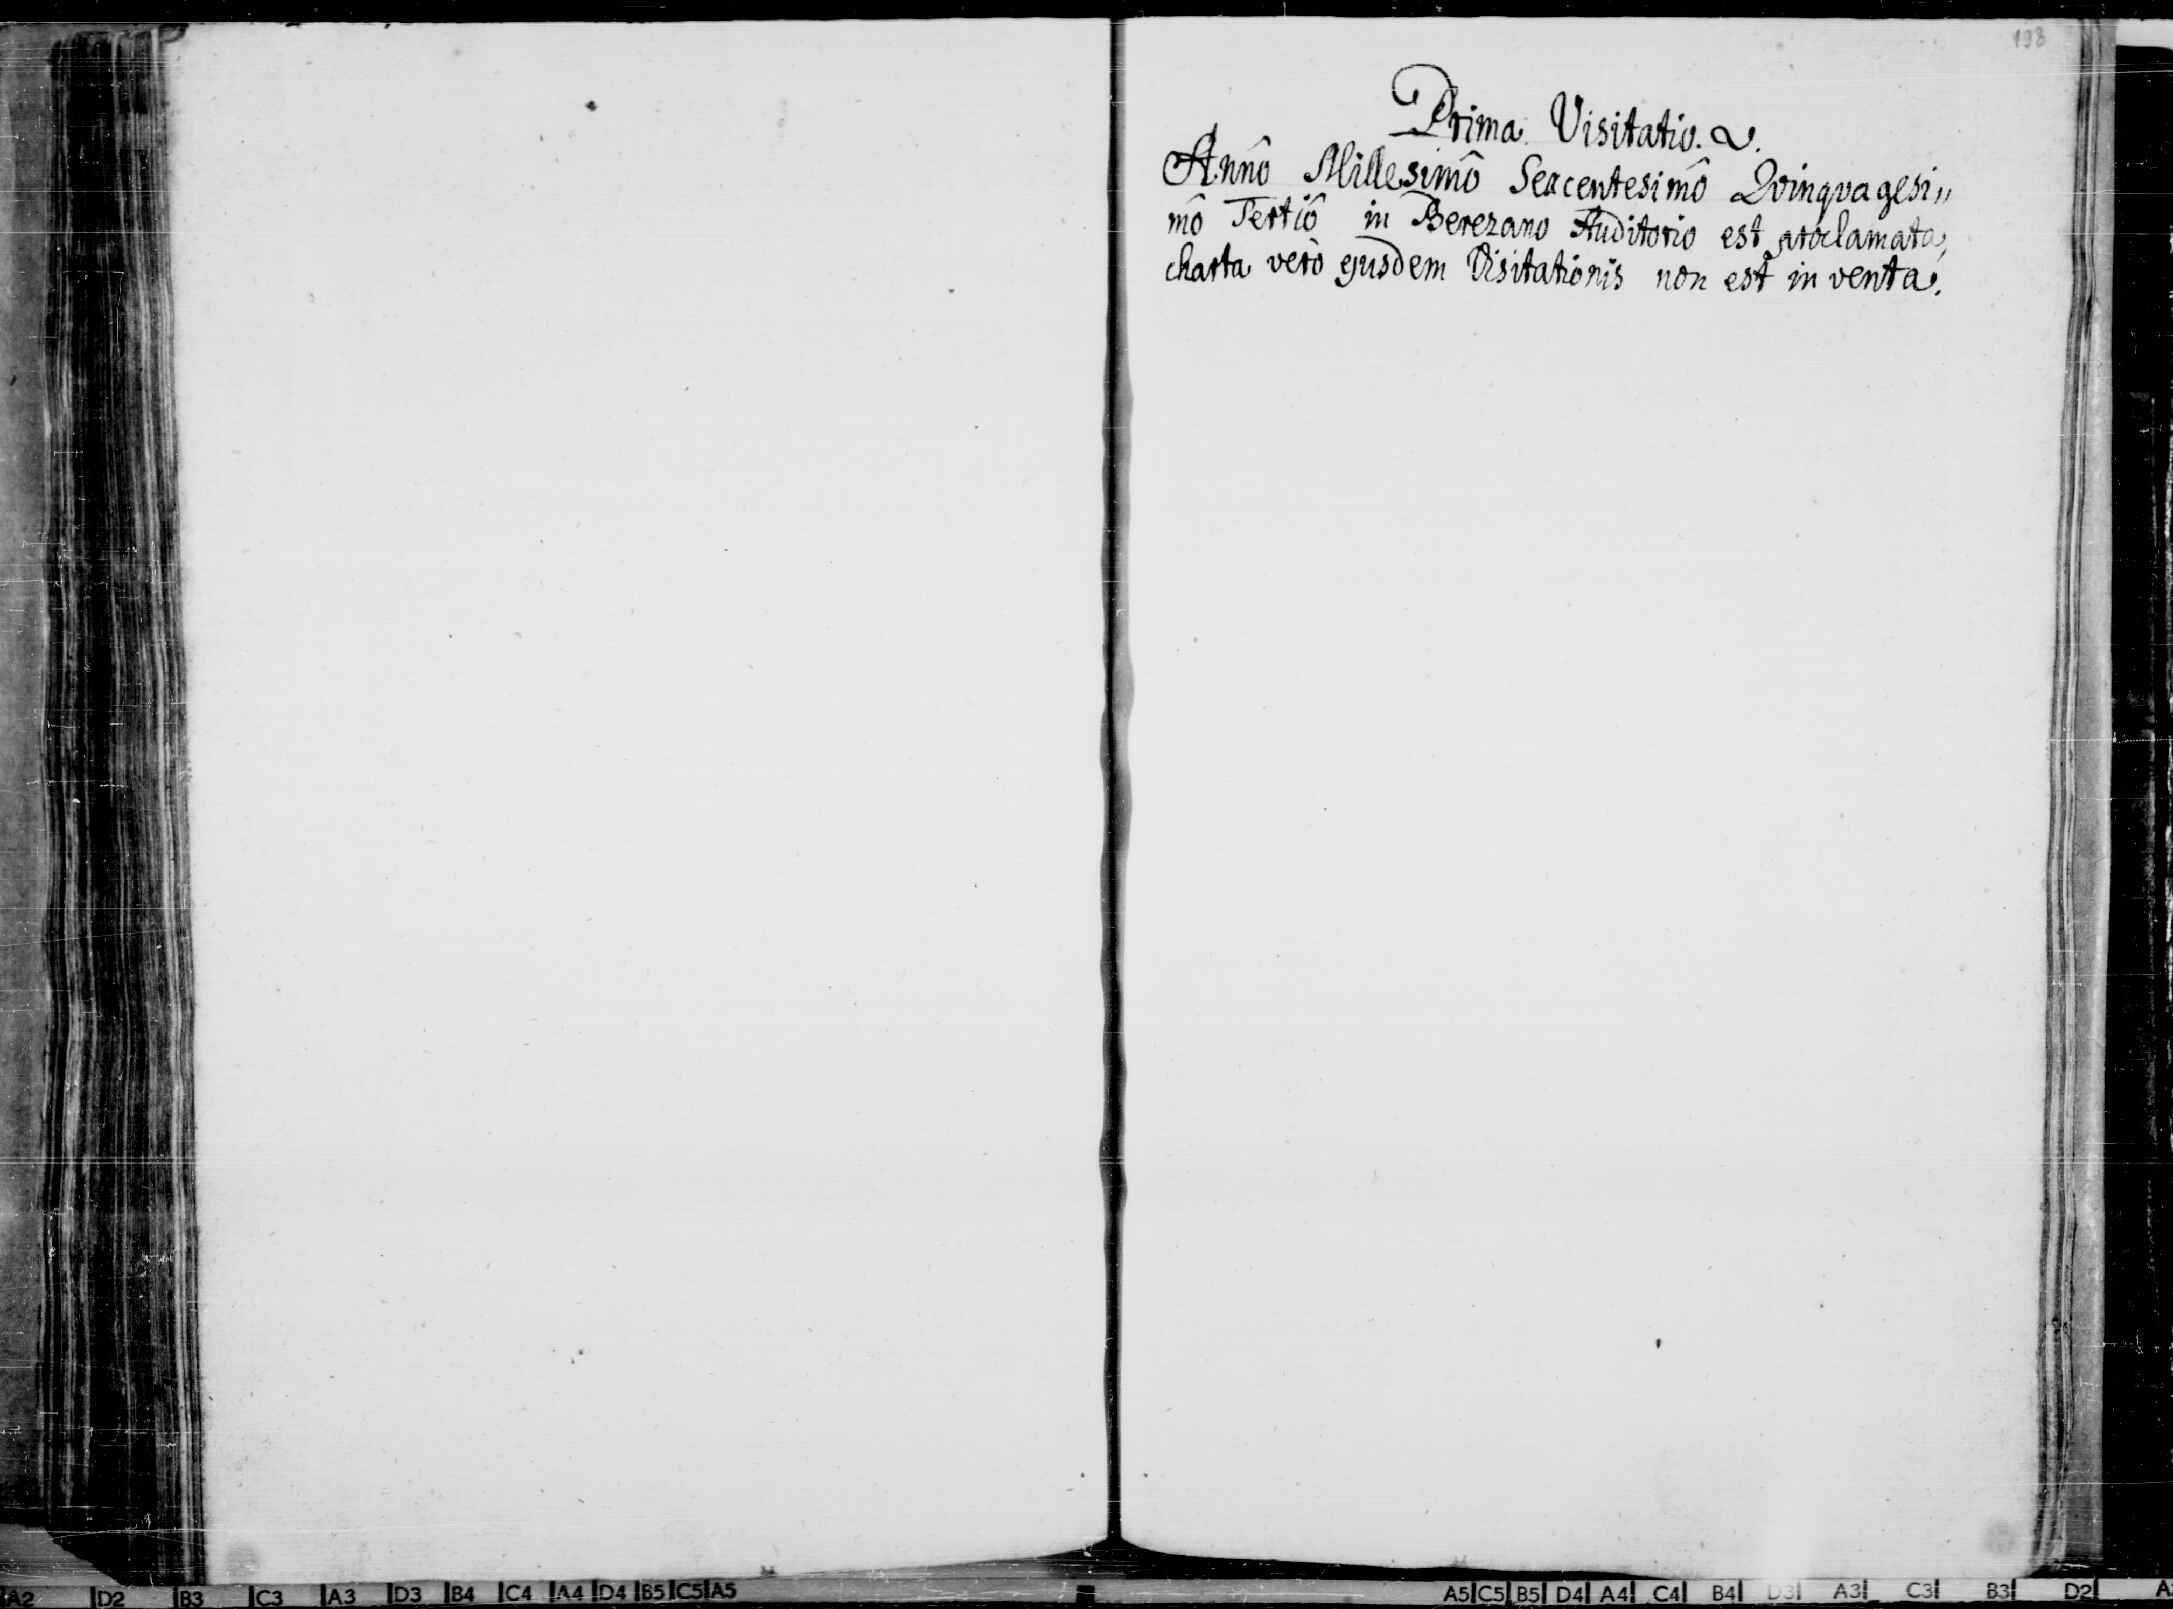 198
Prima Visitatio.
Annô Millesimô Sexcentesimô Qvinqvagesi„
mô Tertiô in Berezano Auditorio est proclamata,
charta verò ejusdem Visitationis non est in venta.
A2 D2 B3 C3 A3 D3 B4 C4 A4 D4 B5 C5 A5
A5 C5 B5 D4 A4 C4 B4 D3 A3 C3 B3 D2